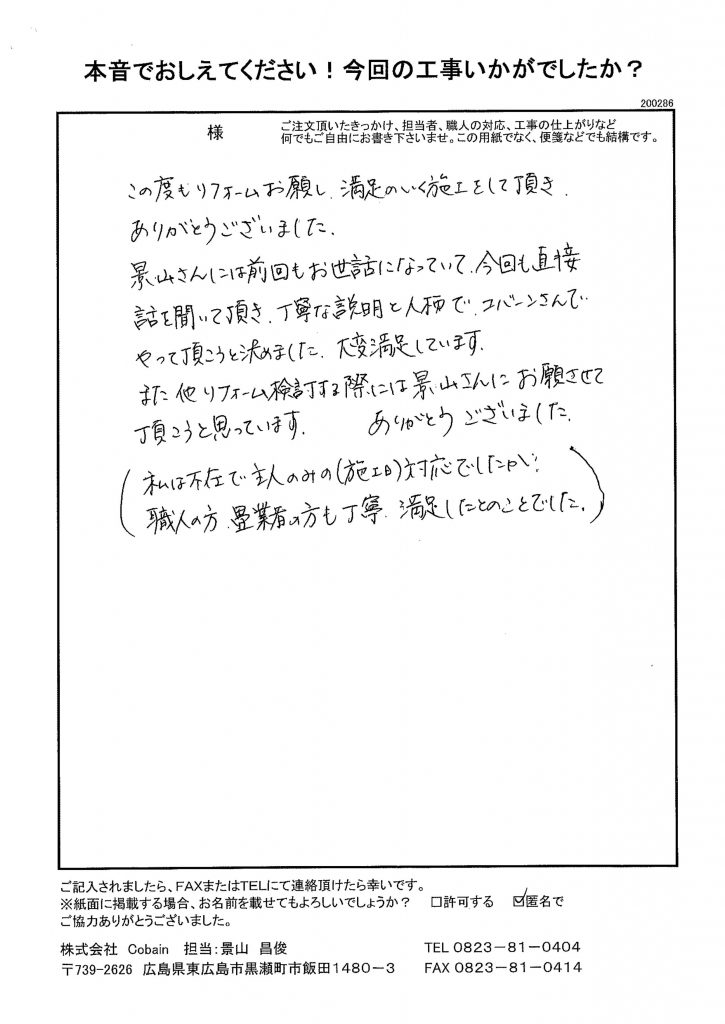 本音でおしえてください！今回の工事いかがでしたか？
200286
様
ご注文頂いたきっかけ、担当者、職人の対応、工事の仕上がりなど
何でもご自由にお書き下さいませ。この用紙でなく、便箋などでも結構です。
この度もリフォームお願いし、満足のいく施工をして頂き、
ありがとうございました。
景山さんには前回もお世話になっていて、今回も直接
話を聞いて頂き、丁寧な説明と人柄で、コバーンさんで
やって頂こうと決めました。大変満足しています。
また他リフォーム検討する際には景山さんにお願させて
頂こうと思っています。 ありがとうございました。
(私は不在で主人のみの(施工日)対応でしたが、
職人の方、畳業者の方も丁寧、満足したとのことでした。)
ご記入されましたら、FAXまたはTELにて連絡頂けたら幸いです。
※紙面に掲載する場合、お名前を載せてもよろしいでしょうか？ □許可する ☑匿名で
ご協力ありがとうございました。
株式会社 Cobain 担当：景山 昌俊 TEL 0823－81－0404
〒739-2626 広島県東広島市黒瀬町市飯田1480－3 FAX 0823－81－0414